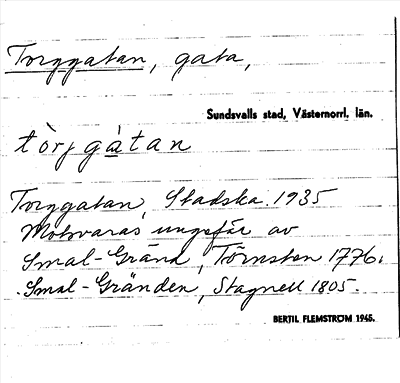 Torggatan, gata,
Sundsvalls stad, Västernorrl. län.
tòrjgàtan
Torggatan, Stadska. 1935
Motsvaras ungefär av
Smal-Gränd, Törnsten 1776.
Smal-Gränden, Stagnell 1805.
BERTIL FLEMSTRÖM 1945.